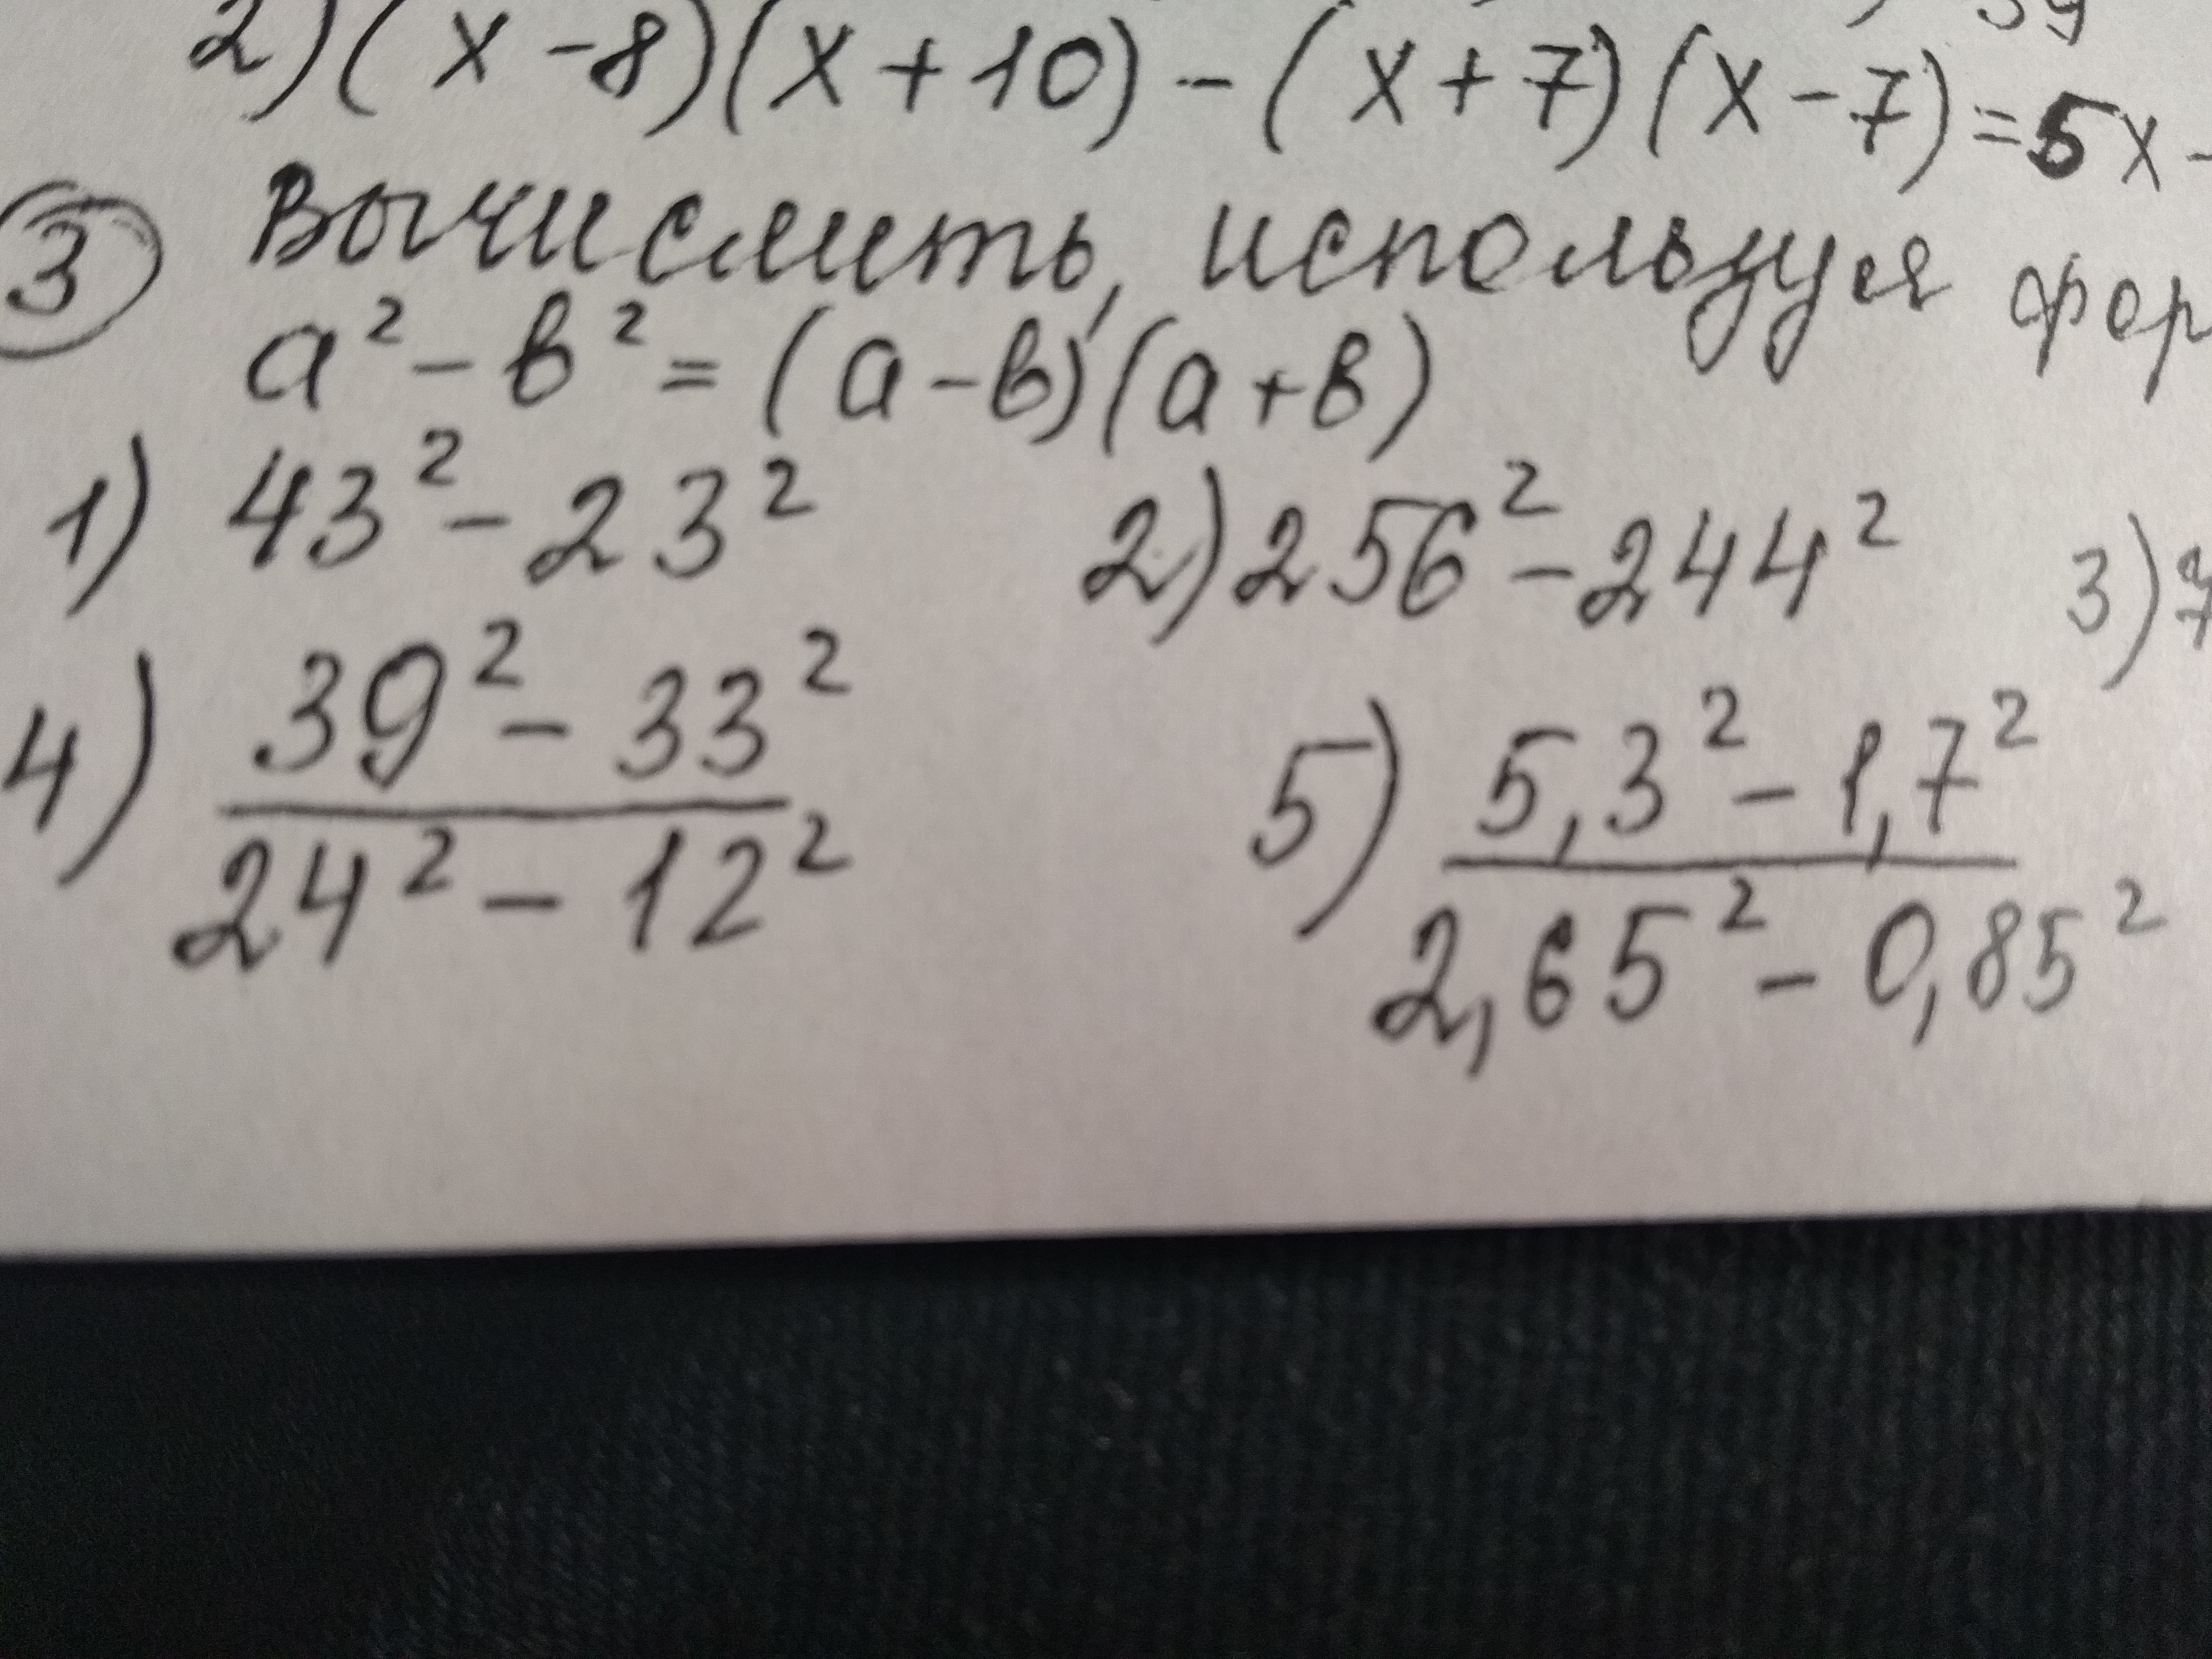 2) (x - 8)(x + 10) - (x + 7)(x - 7) = 5x -
③ Вычислить, используя фор
a² - b² = (a - b)(a + b)
1) 43² - 23² 2) 256² - 244² 3) 7
4) (39² - 33²)/(24² - 12²) 5) (5,3² - 1,7²)/(2,65² - 0,85²)